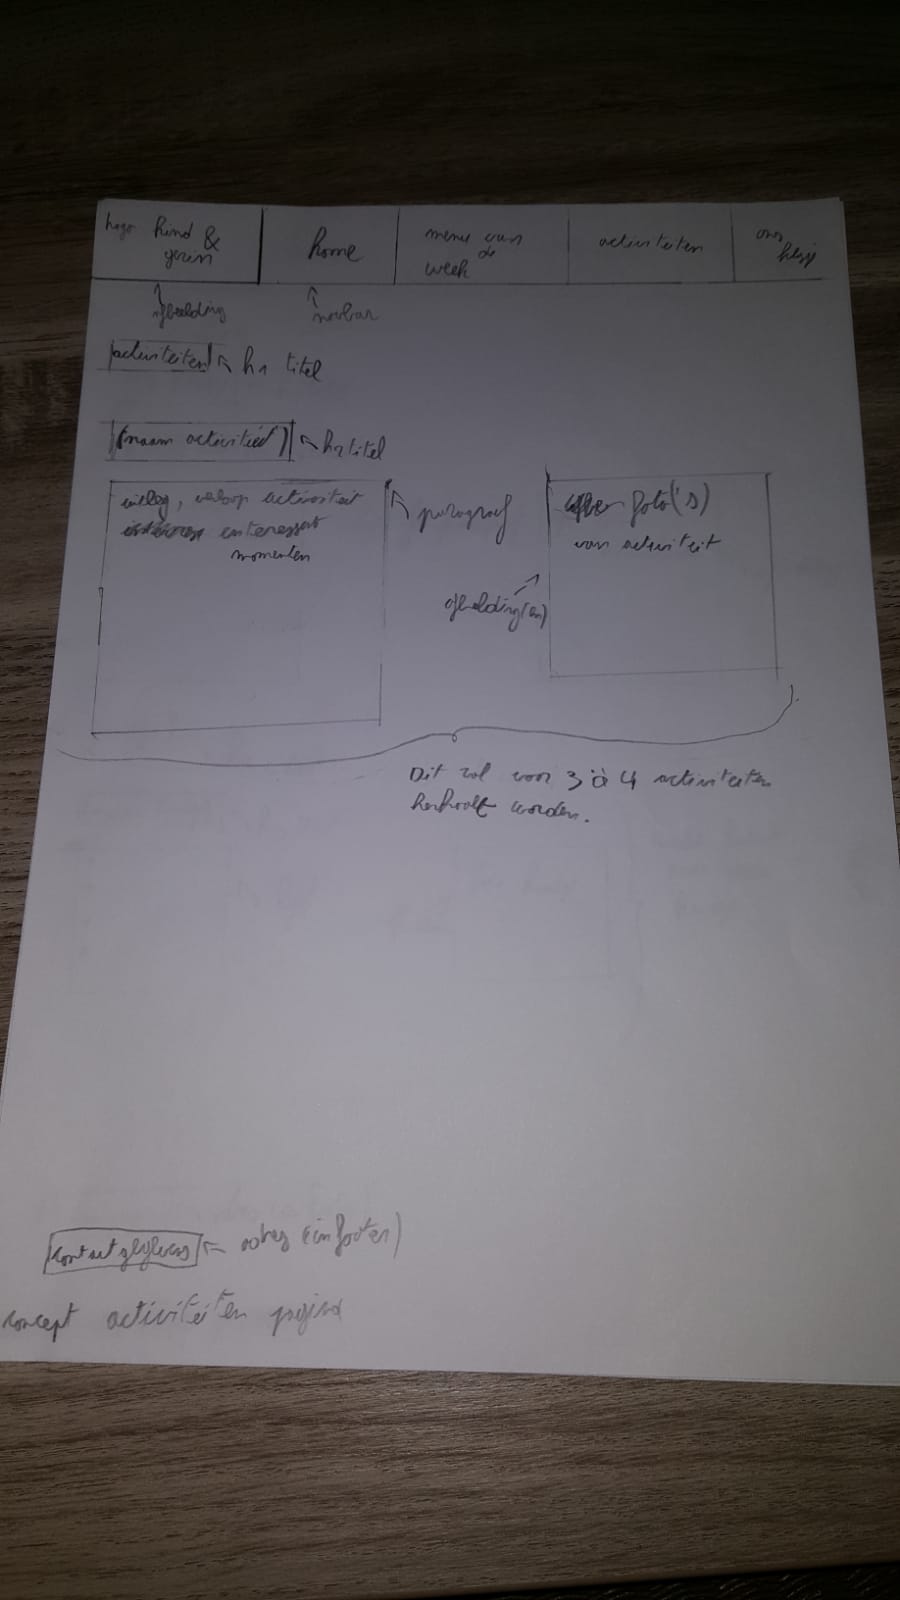 logo kind &
gezin
home
menu van
de
week
activiteiten
ons
afbeelding
navbar
activiteiten
h1 titel
(naam activiteit)
h2 titel
uitleg, verloop activiteit
interessant
momenten
paragraaf
foto('s)
van activiteit
afbeelding(en)
Dit zal voor 3 à 4 activiteiten
herhaalt worden.
contactgegevens
adres (in footer)
concept activiteiten pagina